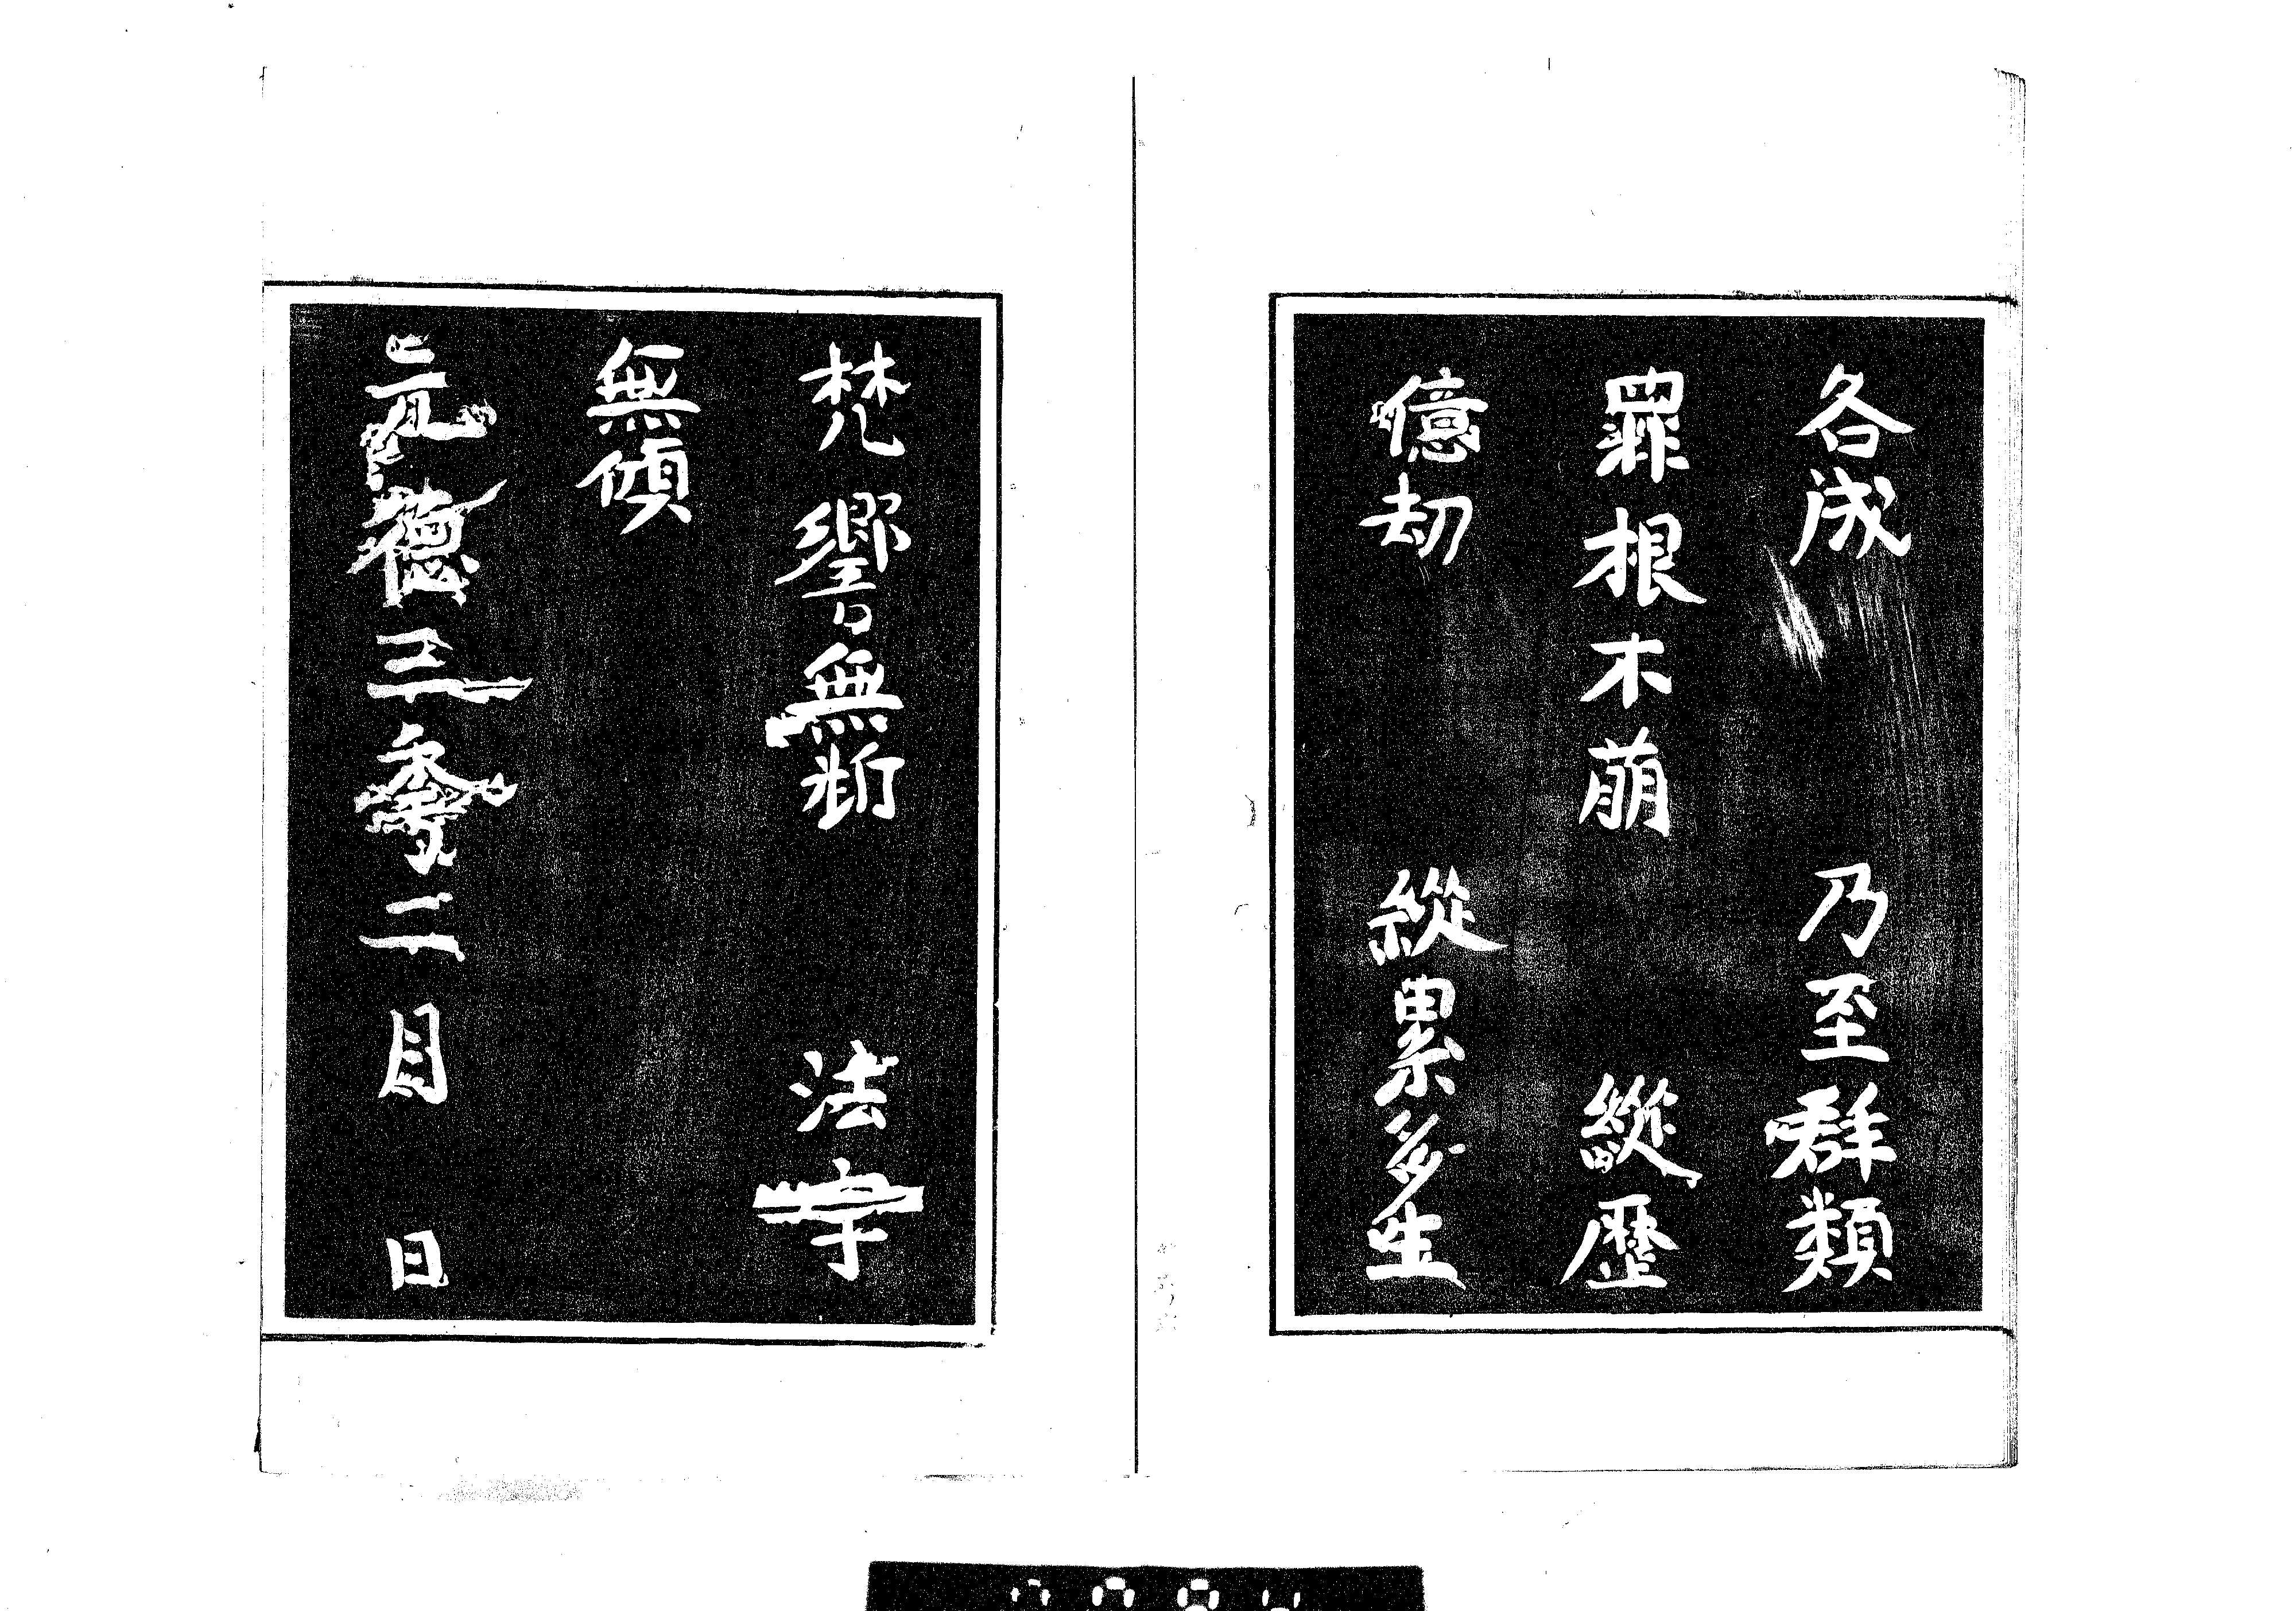 各成 乃至群類
罪根木萠 縱歷
億劫 縱累多生
梵響無断 法宇
無傾
元德三季二月 日